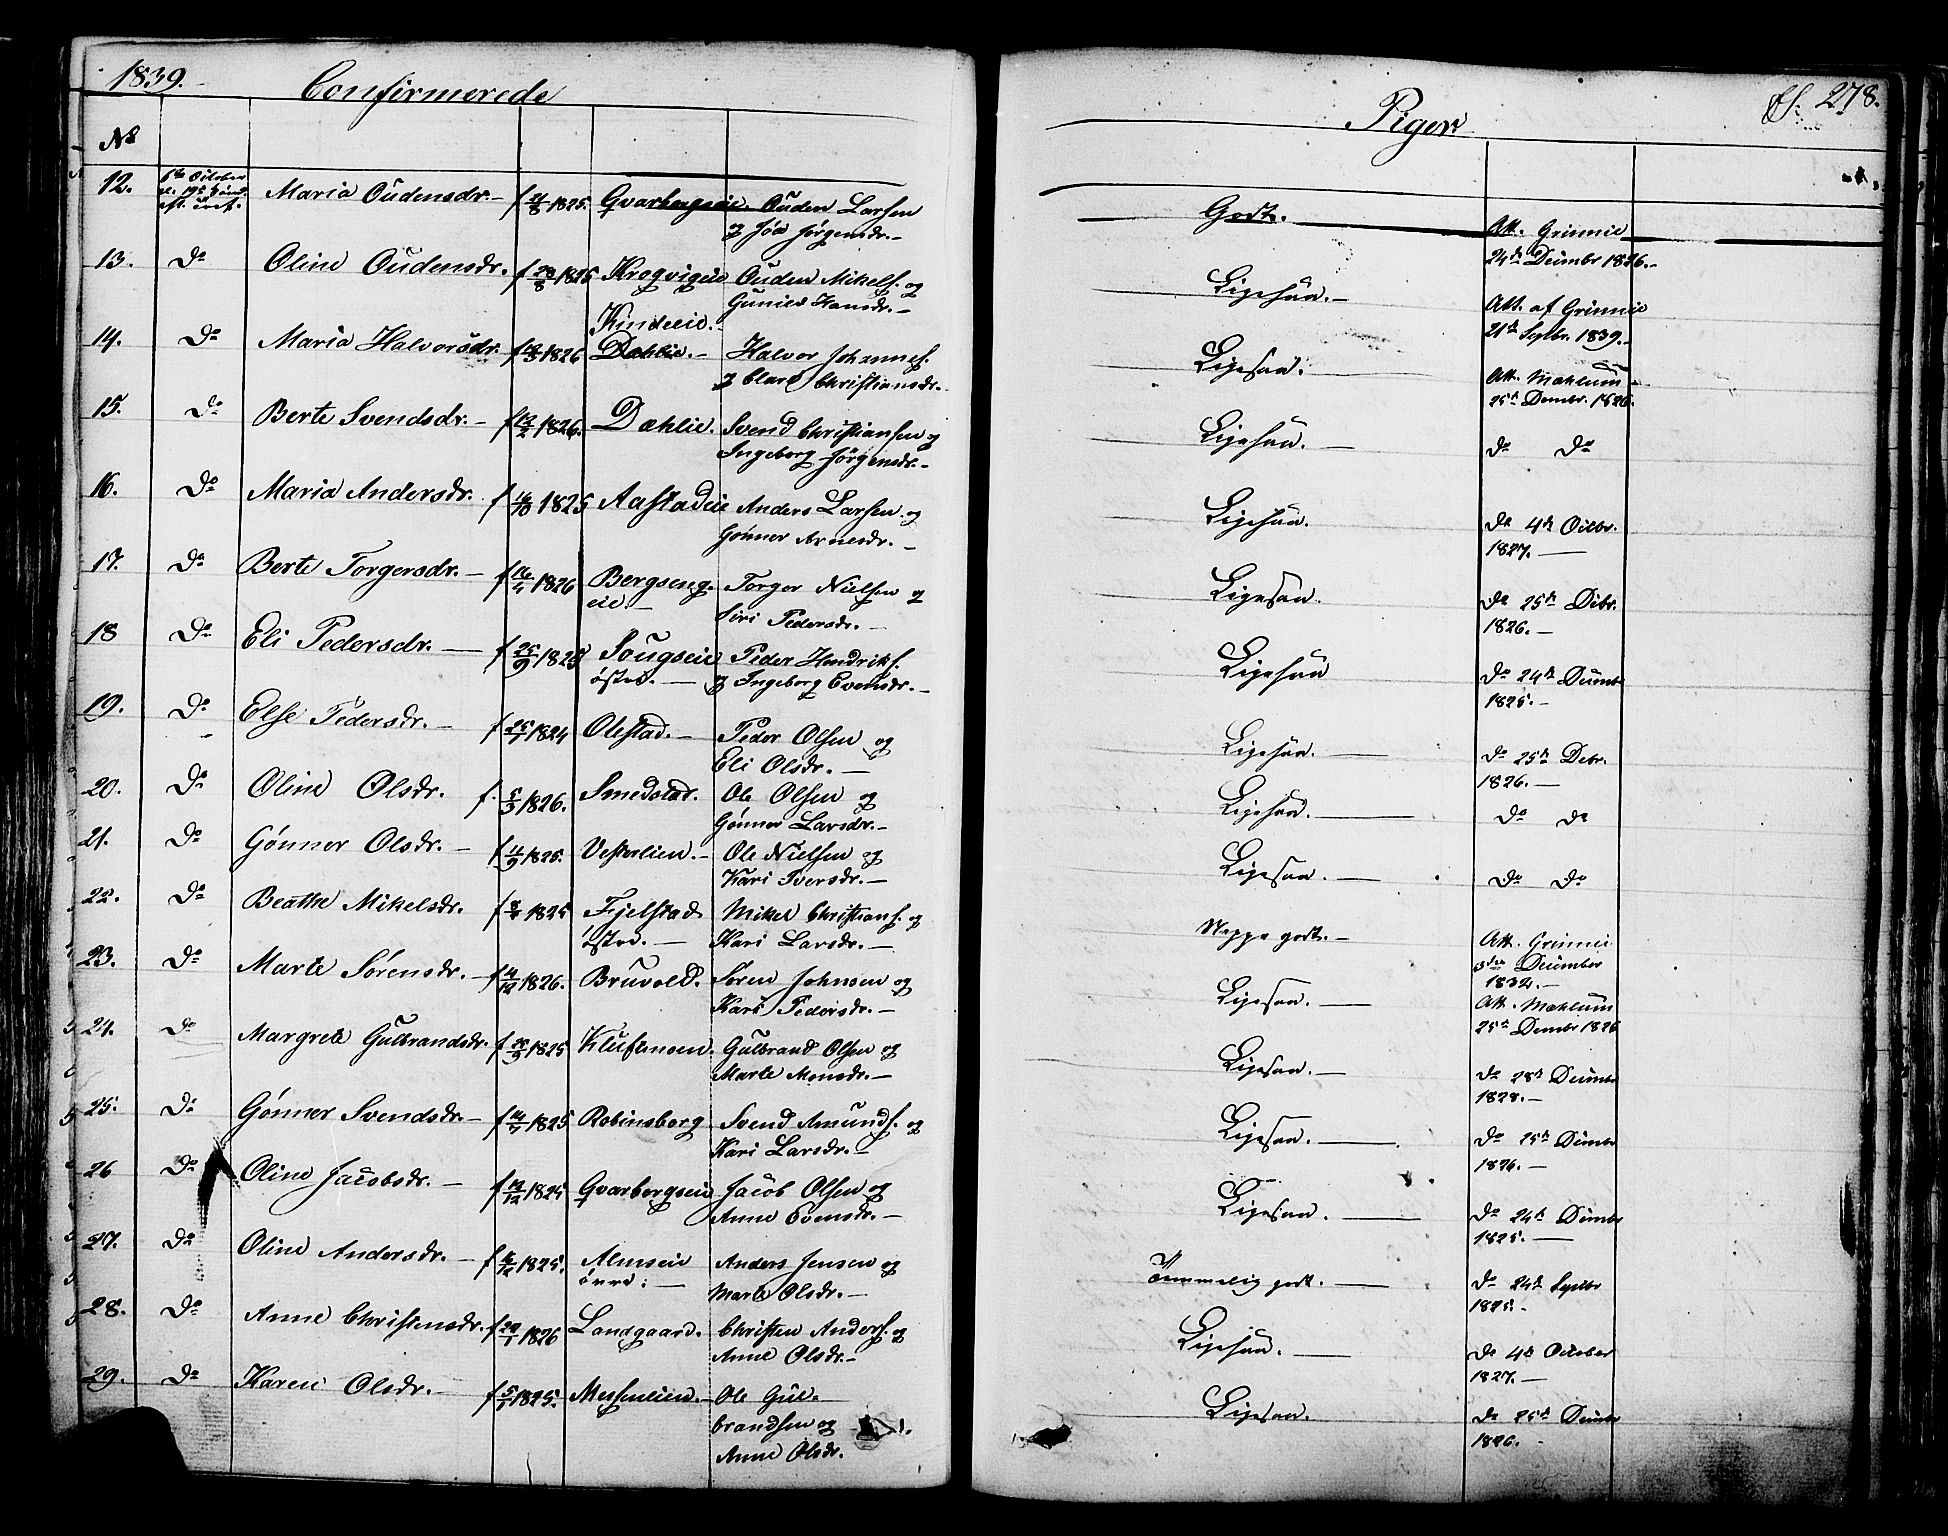 1839. Confirmerede
No
12. Maria Oudensdr. f 1825. Qvarbergseie. Ouden Larsen
og Jörgensdr.
13. Do Oline Oudensdr. f 1825 Krogvigeie Ouden Mikels. og
Gunild Hansdr.
14. Do Maria Halvorsdr. f 1826 Kindeeie.
Dæhlie. Halvor Johannes.
og Christiansdr.
15. Do Berte Svendsdr. f 1826. Dæhlie. Svend Christiansen og
Ingeborg Jörgensdr.
16. Do Maria Andersdr. f 1825 Aastadeie Anders Larsen og
Gönner Arnesdr.
17. Do Berte Torgersdr. f 1826 Bergseng-
eie Torger Nielsen og
Siri Pedersdr.
18 Do Eli Pedersdr. f 25/9 1825 Sougseie
östre. Peder Hendriks.
og Ingeborg Evensdr.
19. Do Else Pedersdr. f 25/7 1824 Olestad. Peder Olsen og
Eli Olsdr.
20. Do Oline Olsdr. f. 5/3 1826. Smedstad. Ole Olsen og
Gönner Larsdr.
21. Do Gönner Olsdr. f 1825. Vesterlien. Ole Nielsen og
Kari Iversdr.
22. Do Beathe Mikelsdr. f 1825 Fjelstad
östre. Mikel Christians. og
Kari Larsdr.
23. Do Marte Sörensdr. f 1826. Bruvold. Sören Johnsen og
Kari Pedersdr.
24. Do Margrete Gulbrandsdr. f 1825 Gulbrand Olsen og
Marte Monsdr.
25. Do Gönner Svendsdr. f 1825 Robinsborg Svend Amunds. og
Kari Larsdr.
26 Do Oline Jacobsdr. f 1825 Qvarbergseie Jacob Olsen og
Anne Evensdr.
27. Do Oline Andersdr. f 1825. Almseie
övre. Anders Jensen og
Marte Olsdr.
28. Do Anne Christensdr. f 29/1 1826 Landgaard. Christen Anders. og
Anne Olsdr.
29. Do Karen Olsdr. f 5/1 1825. Messenlien. Ole Gul-
brandsen og
Anne Olsdr.
Piger
278.
Godt. Att. Grinnie
24de Decembr 1826.
Ligesaa. Att. af Grinnie
21de Septbr. 1839.
Ligesaa. Att. Mæhlum
25de Decembr. 1826.
Ligesaa. Do Do
Ligesaa. Do 4de Octbr.
1827.
Ligesaa. Do 25de Decbr.
1826.
Ligesaa Do 24de Decembr
1825.
Ligesaa. Do 25de Decbr.
1826.
Ligesaa. Do Do
Ligesaa. Do Do
Neppe godt. Att. Grinnie
December
Ligesaa. Att. Mæhlum
25de Decembr 1826
Ligesaa. Do 28de Decembr
Ligesaa. Do 25de Decembr
1826.
Ligesaa. Do 24de Decembr
1825.
Temmelig godt. Do 24de Septbr
1825.
Ligesaa. Do 4de October
1827.
Ligesaa. Do 25de Decembr
1826.